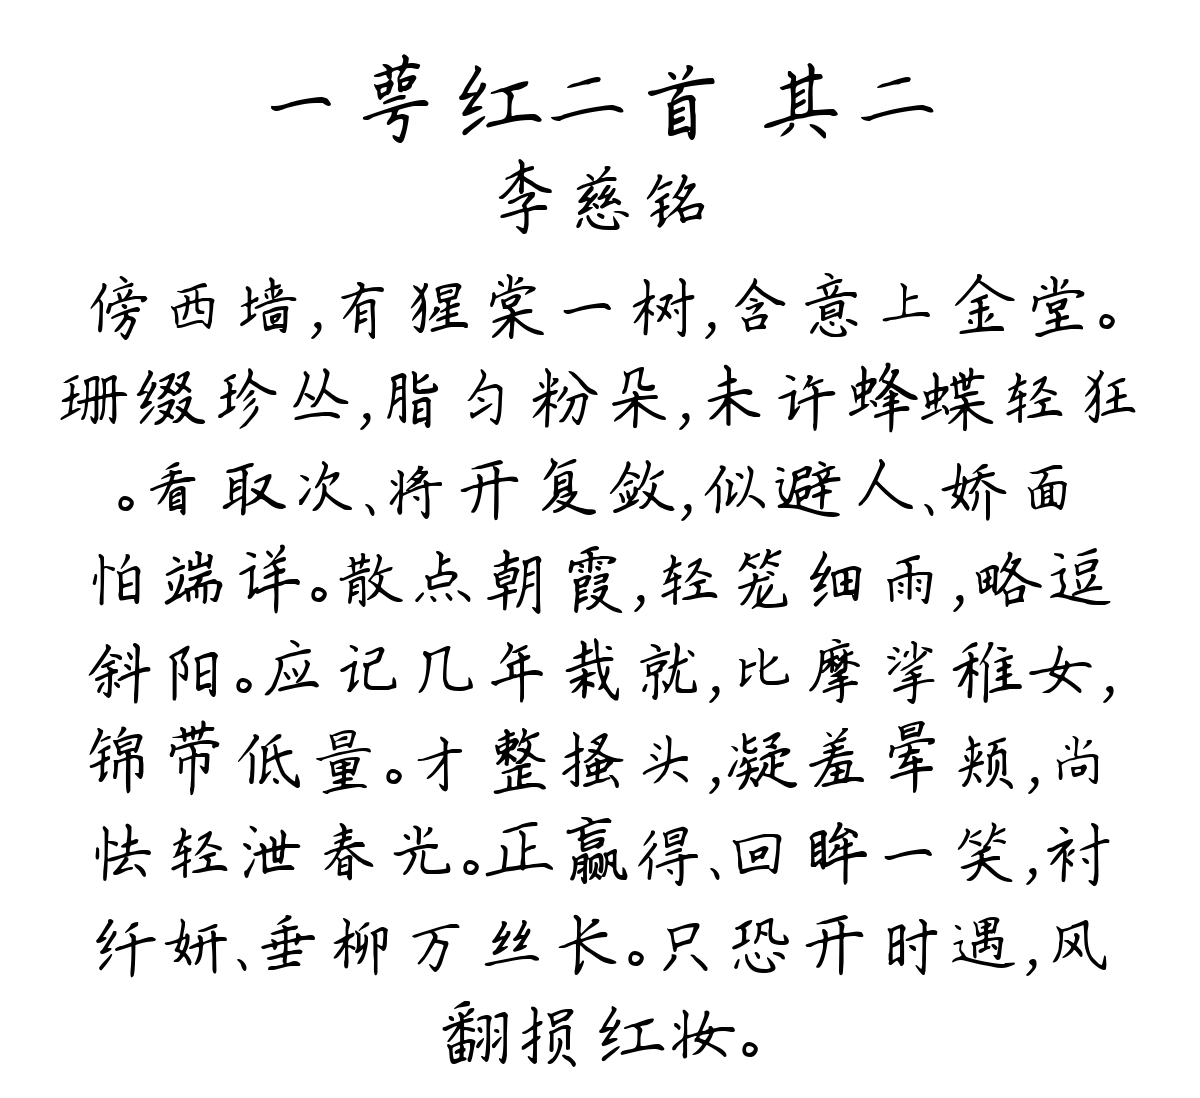 一萼红二首 其二
李慈铭
傍西墙,有猩棠一树,含意上金堂。
珊缀珍丛,脂匀粉朵,未许蜂蝶轻狂
。看取次、将开复敛,似避人、娇面
怕端详。散点朝霞,轻笼细雨,略逗
斜阳。应记几年栽就,比摩挲稚女,
锦带低量。才整搔头,凝羞晕颊,尚
怯轻泄春光。正赢得、回眸一笑,衬
纤妍、垂柳万丝长。只恐开时遇,风
翻损红妆。